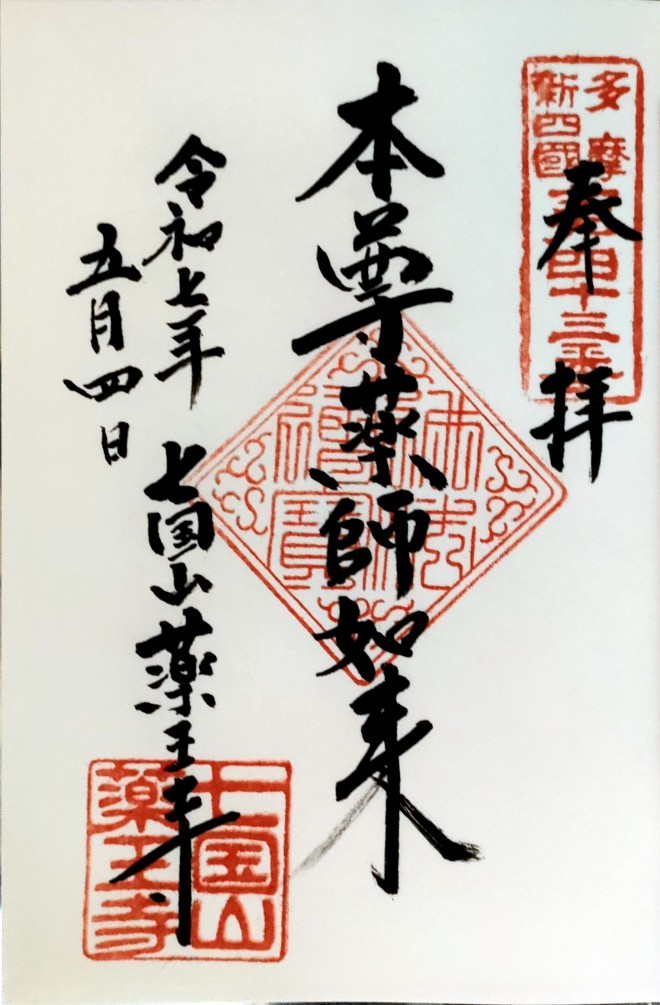 多摩
新四國
第四十三番
奉拝
本尊薬師如来
佛法
僧寳
令和七年
五月四日
七国山薬王寺
七国山
薬王寺